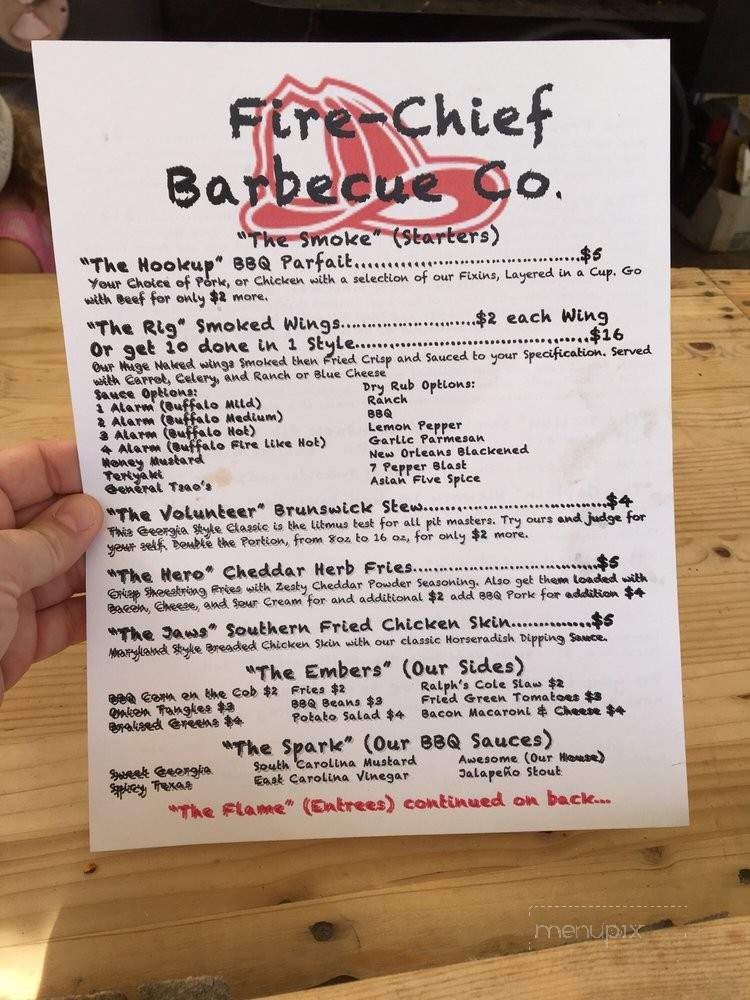 Fire-Chief
Barbecue Co.
"The Smoke" (Starters)
"The Hookup" BBQ Parfait....................................$5
Your Choice of Pork, or Chicken with a selection of our Fixins, Layered in a Cup. Go
with Beef for only $2 more.
"The Rig" Smoked Wings.....................$2 each Wing
Or get 10 done in 1 Style.....................................$16
Our Huge Naked wings Smoked then Fried Crisp and Sauced to your Specification. Served
with Carrot, Celery, and Ranch or Blue Cheese
Sauce Options:
1 Alarm (Buffalo Mild)
2 Alarm (Buffalo Medium)
3 Alarm (Buffalo Hot)
4 Alarm (Buffalo Fire like Hot)
Honey Mustard
Teriyaki
General Tsao's
Dry Rub Options:
Ranch
BBQ
Lemon Pepper
Garlic Parmesan
New Orleans Blackened
7 Pepper Blast
Asian Five Spice
"The Volunteer" Brunswick Stew.............................$4
This Georgia Style Classic is the litmus test for all pit masters. Try ours and judge for
your self. Double the Portion, from 8oz to 16 oz, for only $2 more.
"The Hero" Cheddar Herb Fries.............................$5
Crisp Shoestring Fries with Zesty Cheddar Powder Seasoning. Also get them loaded with
Bacon, Cheese, and Sour Cream for and additional $2 add BBQ Pork for addition $4
"The Jaws" Southern Fried Chicken Skin.............$5
Maryland Style Breaded Chicken Skin with our classic Horseradish Dipping Sauce.
"The Embers" (Our Sides)
BBQ Corn on the Cob $2 Fries $2 Ralph's Cole Slaw $2
Onion Tangles $3 BBQ Beans $3 Fried Green Tomatoes $3
Braised Greens $4 Potato Salad $4 Bacon Macaroni & Cheese $4
"The Spark" (Our BBQ Sauces)
Sweet Georgia South Carolina Mustard Awesome (Our House)
Spicy Texas East Carolina Vinegar Jalapeño Stout
"The Flame" (Entrees) continued on back...
menupix